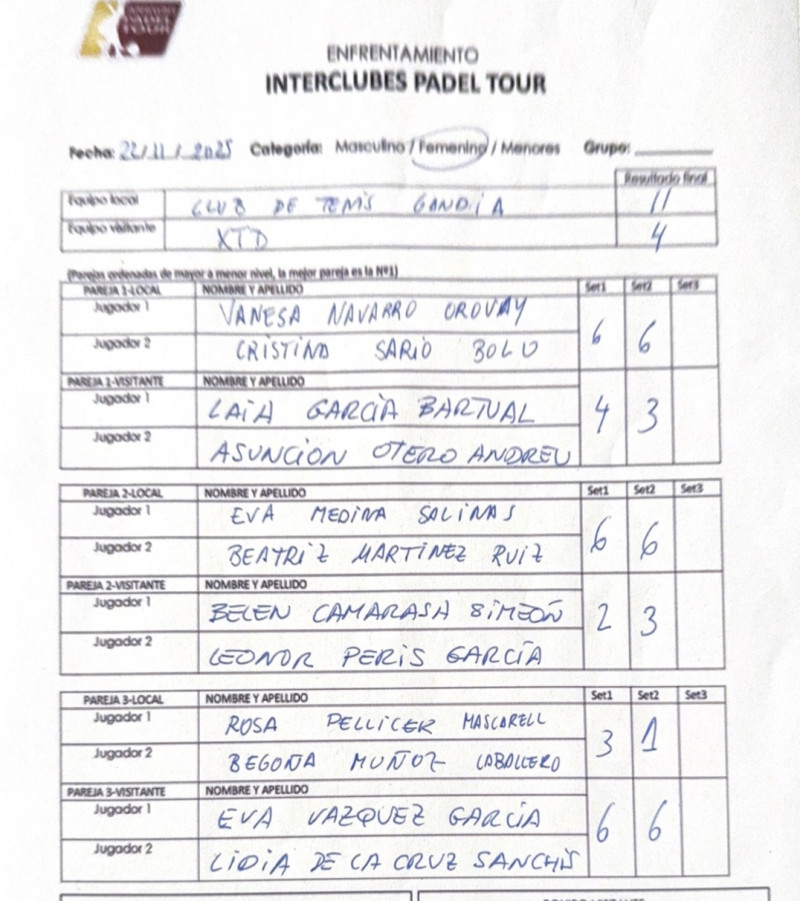 PADEL
TOUR
ENFRENTAMIENTO
INTERCLUBES PADEL TOUR
Fecha: 22/11/2025 Categoría: Masculino / Femenino / Menores Grupo:
Resultado final
Equipo local CLUB DE TENIS GANDIA 11
Equipo visitante XTD 4
(Parejas ordenadas de mayor a menor nivel, la mejor pareja es la Nº1)
PAREJA 1-LOCAL NOMBRE Y APELLIDO Set1 Set2 Set3
Jugador 1 VANESA NAVARRO OROVAY
Jugador 2 CRISTINA SARIO BOLO 6 6
PAREJA 1-VISITANTE NOMBRE Y APELLIDO
Jugador 1 LAIA GARCIA BARTUAL 4 3
Jugador 2 ASUNCION OTERO ANDREU
PAREJA 2-LOCAL NOMBRE Y APELLIDO Set1 Set2 Set3
Jugador 1 EVA MEDINA SALINAS
Jugador 2 BEATRIZ MARTINEZ RUIZ 6 6
PAREJA 2-VISITANTE NOMBRE Y APELLIDO
Jugador 1 BELEN CAMARASA SIMEÓN 2 3
Jugador 2 LEONOR PERIS GARCÍA
PAREJA 3-LOCAL NOMBRE Y APELLIDO Set1 Set2 Set3
Jugador 1 ROSA PELLICER MASCARELL
Jugador 2 BEGOÑA MUÑOZ CABALLERO 3 1
PAREJA 3-VISITANTE NOMBRE Y APELLIDO
Jugador 1 EVA VAZQUEZ GARCÍA 6 6
Jugador 2 LIDIA DE LA CRUZ SANCHIS